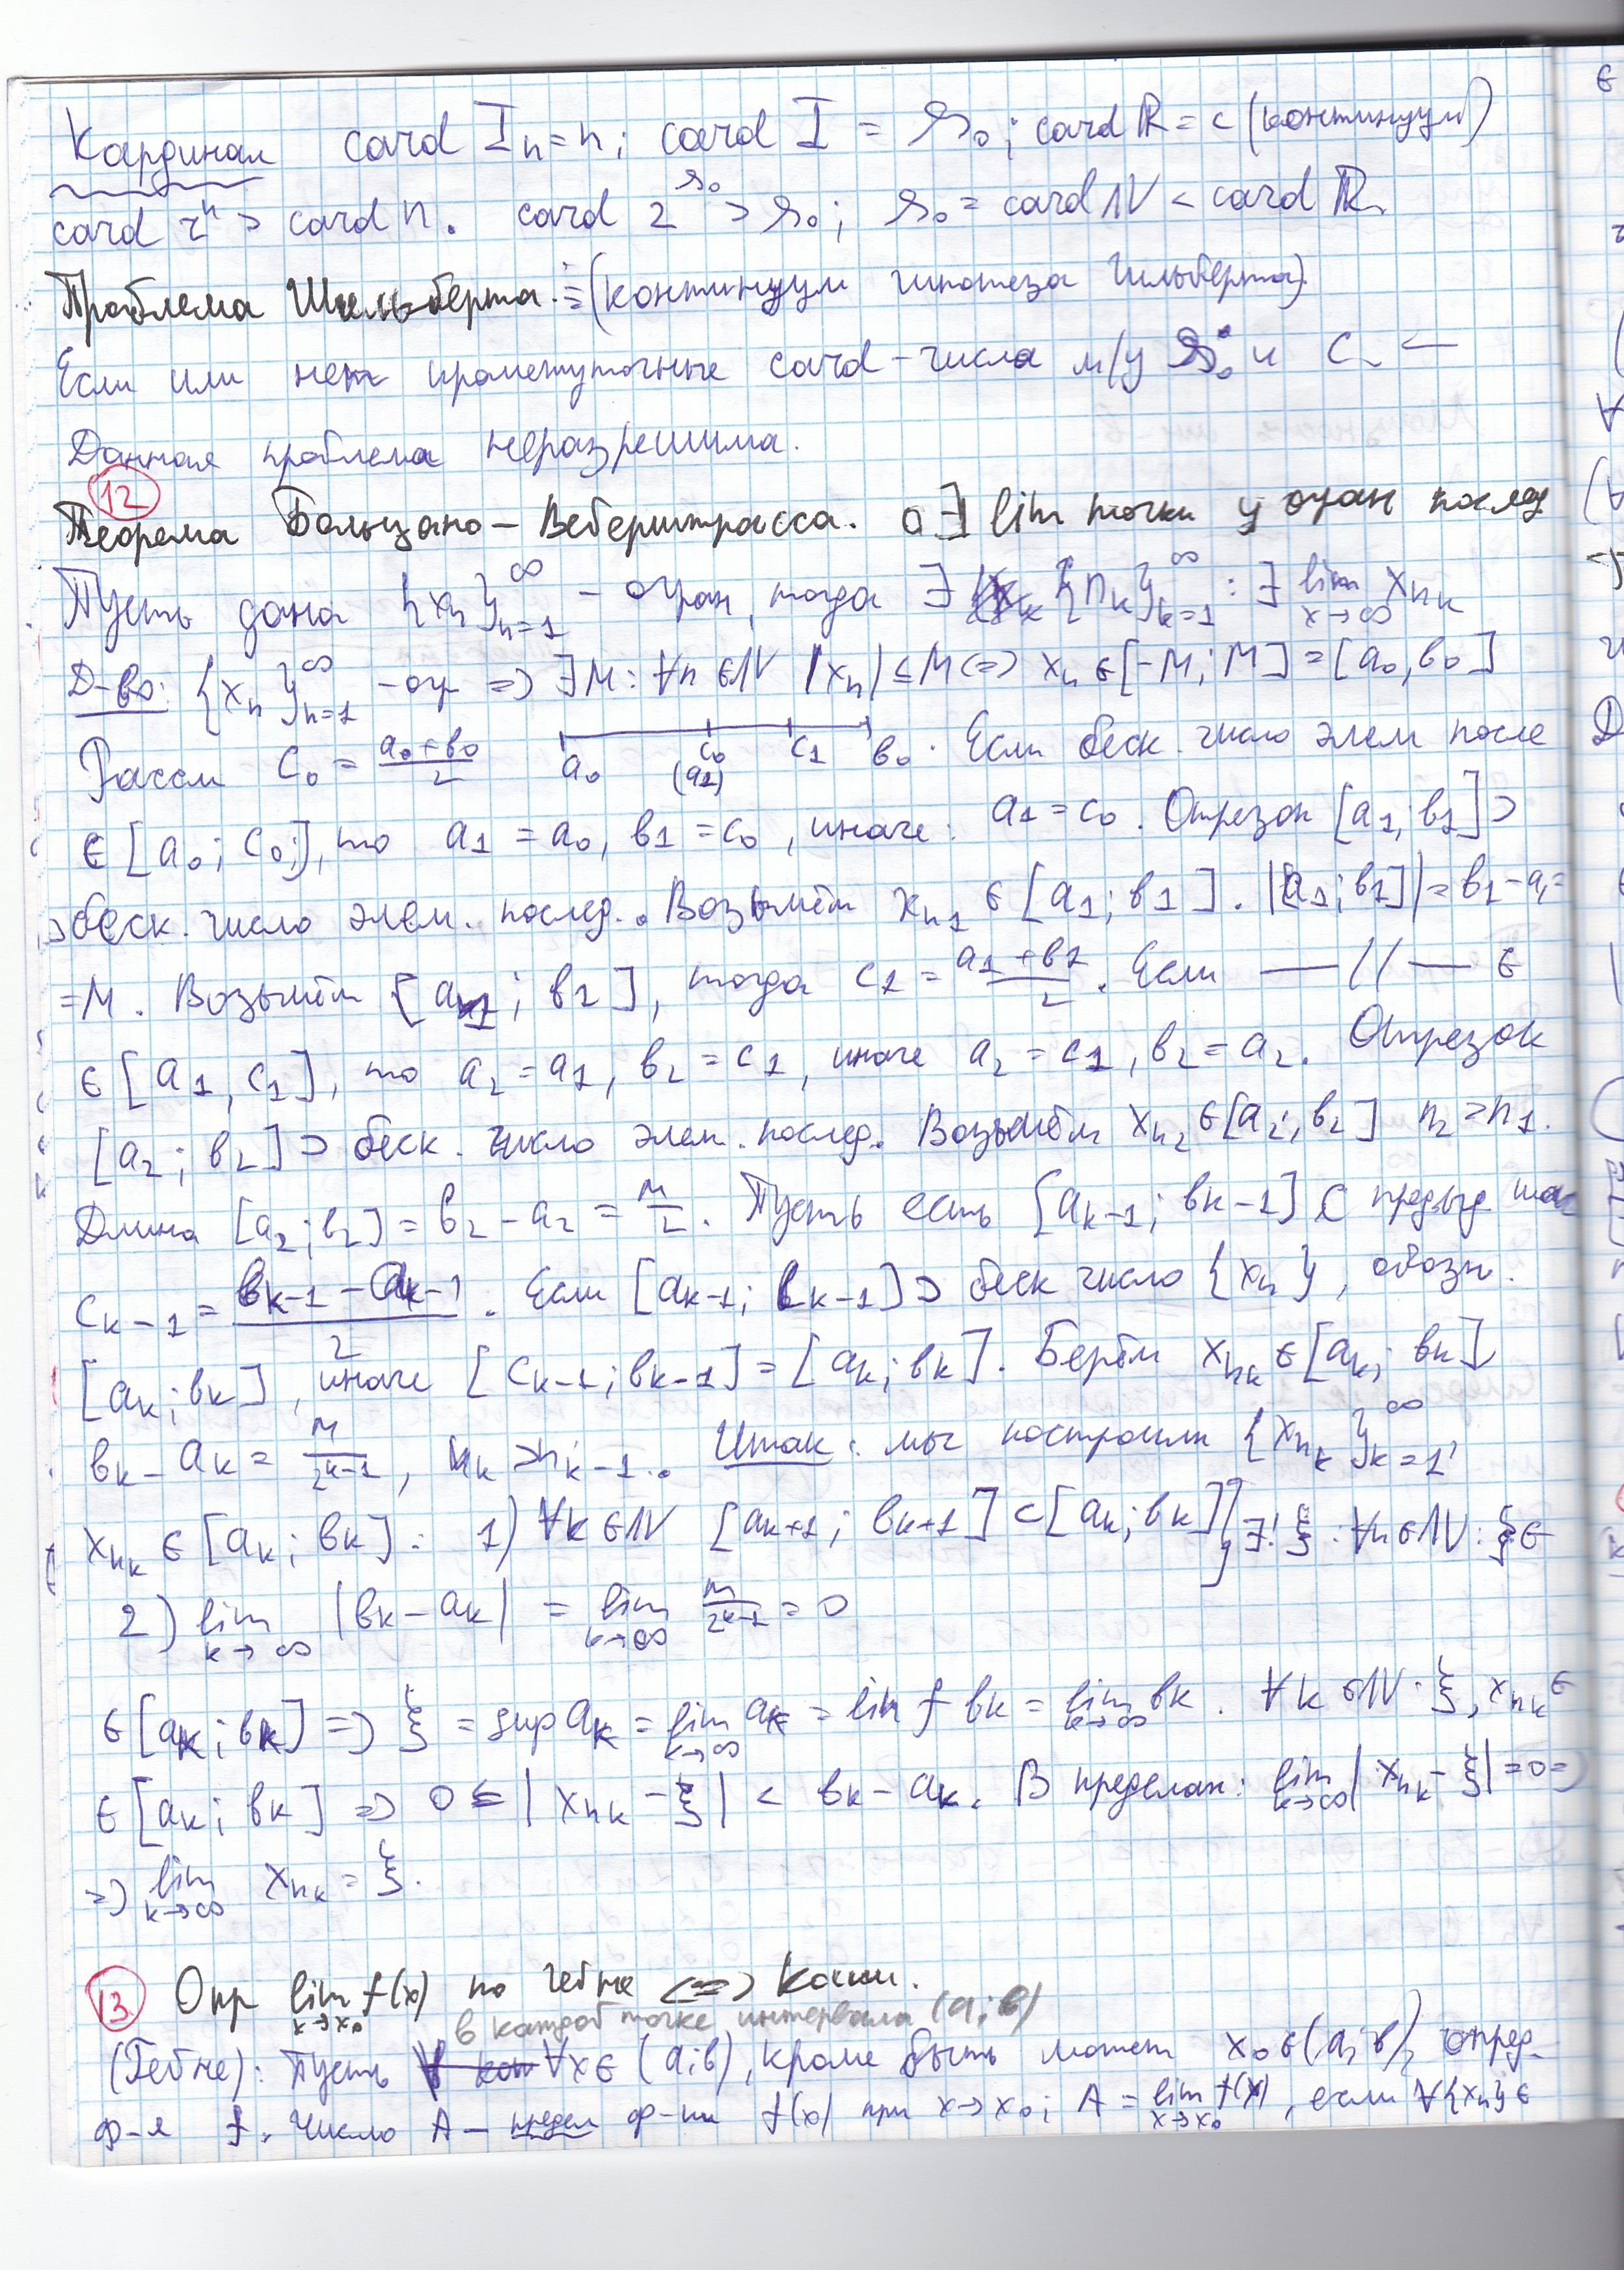 Кардинал card Iₙ = n; card I = ℵ₀; card ℝ = c (континуум)
card 2ⁿ > card n. card 2^ℵ₀ > ℵ₀; ℵ₀ = card ℕ < card ℝ.
Проблема Гильберта := (континуум гипотеза Гильберта)
Если или нет промежуточные card-числа м/у ℵ₀ и C.
Данная проблема неразрешима.
12
Теорема Больцано – Веберштрасса. о ∃ lim точки у огран послед
Пусть дана {xₙ}ₙ₌₁^∞ – огран, тогда ∃ {n_k}_{k=1}^∞ : ∃ lim_{x→∞} x_{n_k}
Д-во: {xₙ}ₙ₌₁^∞ – огр => ∃M: ∀n ∈ ℕ |xₙ| ≤ M <=> xₙ ∈ [-M; M] = [a₀, b₀]
Рассм C₀ = (a₀+b₀)/2 a₀ c₀ (a1) c₁ b₀. Если беск. число элем после
∈ [a₀; c₀], то a₁ = a₀, b₁ = c₀, иначе: a₁ = c₀. Отрезок [a₁, b₁] ⊃
⊃ беск. число элем. послед. Возьмём x_{n₁} ∈ [a₁; b₁]. |[a₁; b₁]| = b₁ - a₁ =
= M. Возьмём [a₁; b₁], тогда c₁ = (a₁+b₁)/2. Если —//— ∈
∈ [a₁, c₁], то a₂ = a₁, b₂ = c₁, иначе a₂ = c₁, b₂ = a₂. Отрезок
[a₂; b₂] ⊃ беск. число элем. послед. Возьмём x_{n₂} ∈ [a₂; b₂] n₂ > n₁.
Длина [a₂; b₂] = b₂ - a₂ = M/2. Пусть есть [a_{k-1}; b_{k-1}] С предыд. шаг
c_{k-1} = (b_{k-1} - a_{k-1})/2. Если [a_{k-1}; b_{k-1}] ⊃ беск число {xₙ}, обозн.
[a_k; b_k], иначе [c_{k-1}; b_{k-1}] = [a_k; b_k]. Берём x_{n_k} ∈ [a_k; b_k]
b_k - a_k = M/2^{k-1}, n_k > n_{k-1}. Итак: мы построили {x_{n_k}}_{k=1}^∞,
x_{n_k} ∈ [a_k; b_k]: 1) ∀k ∈ ℕ [a_{k+1}; b_{k+1}] ⊂ [a_k; b_k] } ∃! ξ: ∀n ∈ ℕ: ξ ∈
2) lim_{k→∞} |b_k - a_k| = lim_{k→∞} M/2^{k-1} = 0
∈ [a_k; b_k] => ξ = sup a_k = lim_{k→∞} a_k = inf b_k = lim_{k→∞} b_k. ∀k ∈ ℕ: ξ, x_{n_k} ∈
∈ [a_k; b_k] => 0 ≤ |x_{n_k} - ξ| < b_k - a_k. В пределах: lim_{k→∞} |x_{n_k} - ξ| = 0 =>
=> lim_{k→∞} x_{n_k} = ξ.
13 Опр lim_{x→x₀} f(x) по Гейне <=> Коши.
в каждой точке интервала (a; b)
(Гейне): Пусть ∀x ∈ (a; b), кроме быть может x₀ ∈ (a; b), опред.
ф-я f. Число A – предел ф-ии f(x) при x → x₀; A = lim_{x→x₀} f(x), если ∀{xₙ} ∈